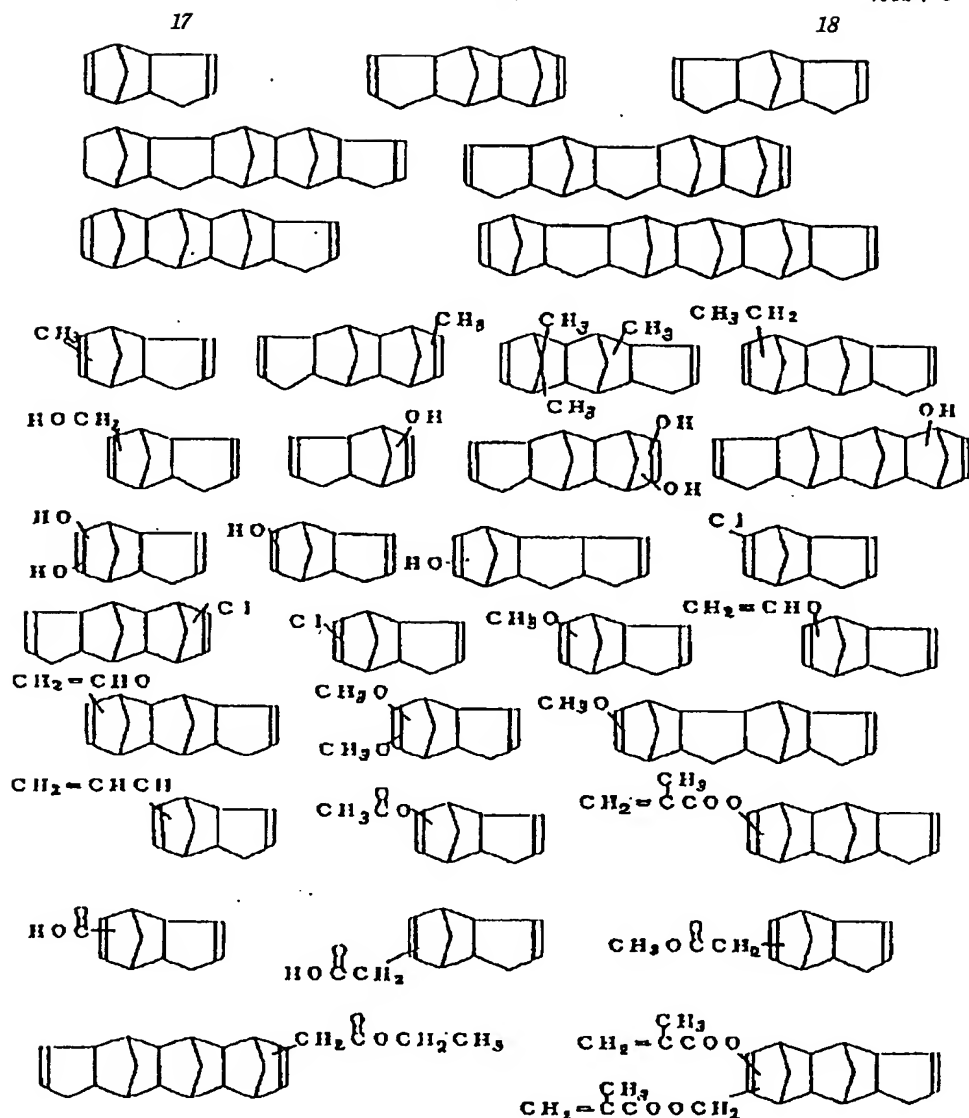 17 18
CH₃ CH₃ CH₃ CH₃ CH₃CH₂
CH₃
HOCH₂ OH OH OH
OH
HO HO Cl
HO HO
Cl Cl CH₃O CH₂=CHO
CH₂=CHO CH₃O CH₃O
CH₃O
CH₂=CHCH CH₃CO CH₃
O CH₂=CCOO
HOC O CH₃OCCH₂ O
HOCCH₂ O
CH₂COCH₂CH₃ O CH₃
CH₂=CCOO
CH₃
CH₂=CCOOCH₂